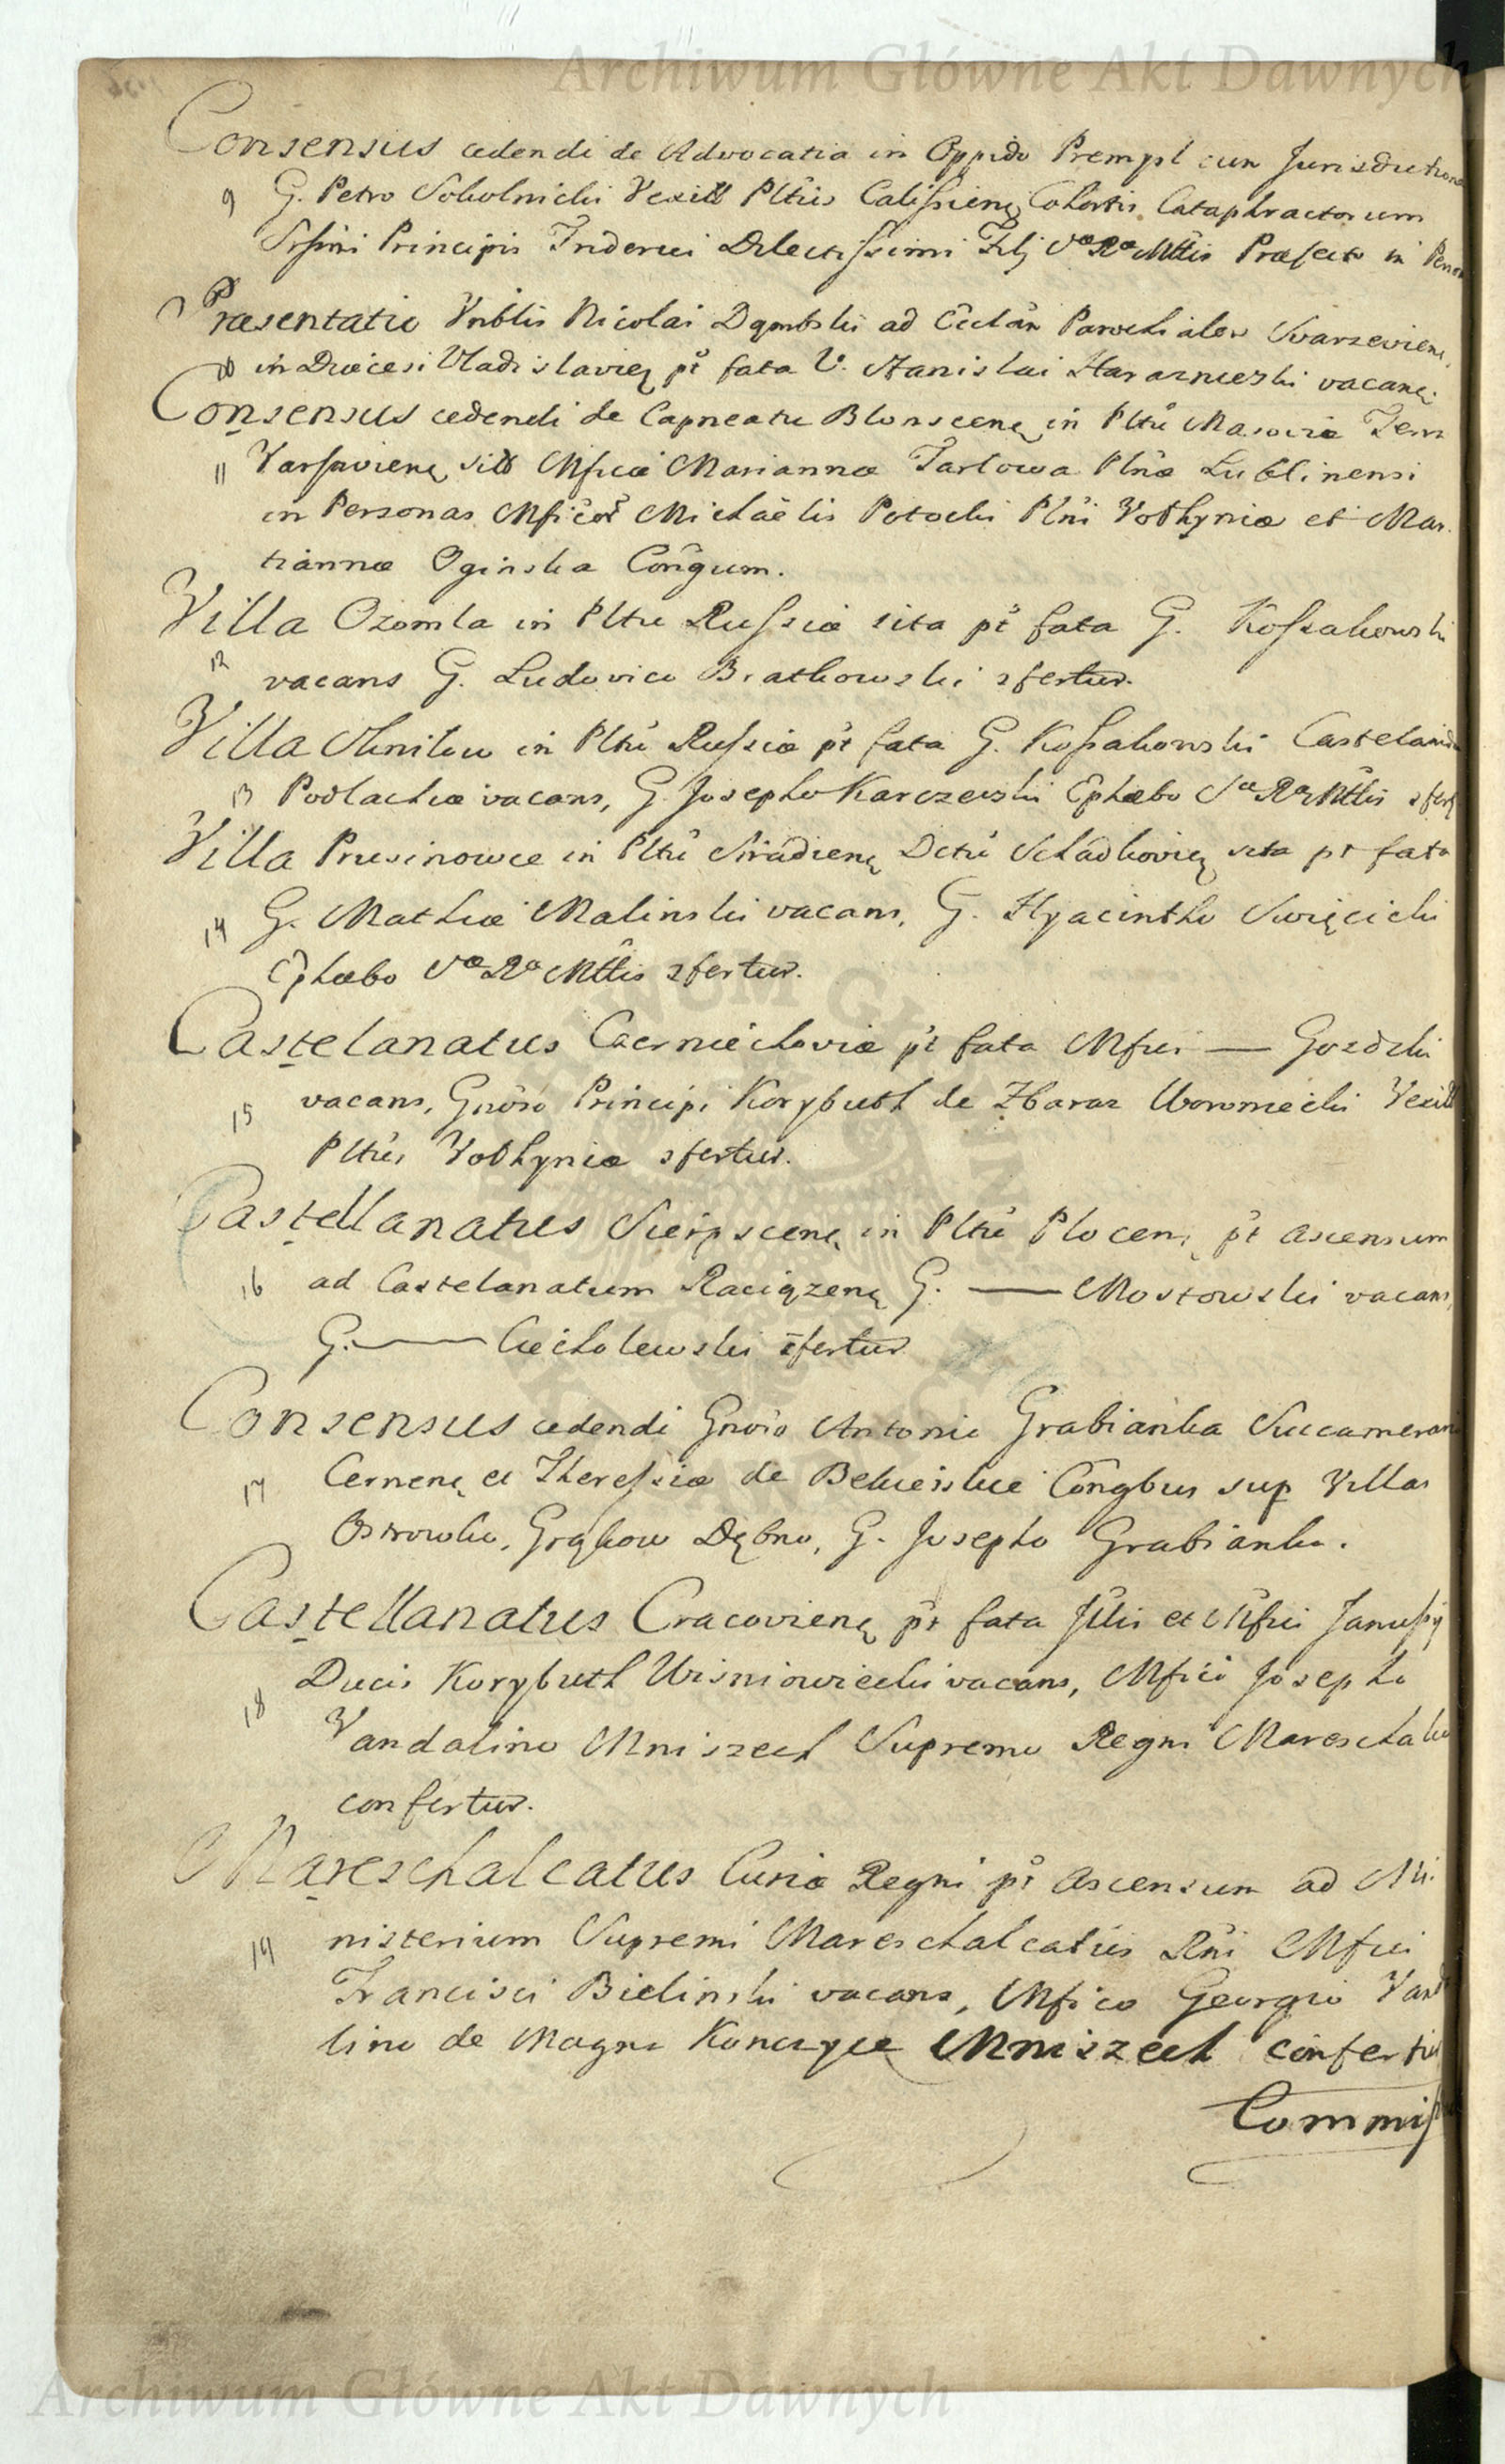 Archiwum Główne Akt Dawnych
Consensus cedendi de Advocatia in Oppido Prempsl cum Jurisdictione
9 G. Petro Sokolnicki Vexill Pltûs Calissienę Cohortis Cataphractorum
Srssimi Principis Friderici Dilectissimi Filij Sæ Ræ Mttis Præfecto in
Præsentatio Vnblis Nicolai Dąmbski ad Ecclân Parochialem Swarzevienę
10 in Diæcesi Vladislavieę pt fata V. Stanislai vacanę.
Consensus cedendi de Capneatu Blonscenę in Pltû Masoviæ Terra
11 Varsavienę sitô Mficæ Mariannæ Tarlowa Plnæ Lublinensi
in Personas Mficor Michaëlis Potocki Plni Volhyniæ et Mar-
tiannæ Oginska Côngum.
Villa Ozomla in Pltu Russiæ sita pt fata G. Kossakowski
12 vacans G. Ludovico Bratkowski sfertur.
Villa Sknilow in Pltû Russiæ pt fata G. Kossakowski Castelanida
13 Podlachiæ vacans, G. Josepho Karczewski Ephæbo Sæ Ræ Mttis sfert
Villa Prusinowce in Pltû Siradienę Dctû Schadkovieę sita pt fata
14 G. Mathiæ Malinski vacans, G. Hyacintho Swięcicki
Ephæbo Sæ Ræ Mttis sfertur.
Castelanatus Czerniechoviæ pt fata Mfici — Gozdzki
15 vacans, Gnôso Principi Korybuth de Zbaraz Woroniecki Vexill
Pltûs Volhyniæ sfertur.
Castellanatus Sierpscenę in Pltû Plocenę pt ascensum
16 ad Castelanatum Raciązenę G. — Mostowski vacans,
G. — Ciecholewski sfertur
Consensus cedendi Gnôso Antonio Grabianka Succamerario
17 Cernenę et Theressiæ de Côngbus sup Villas
Ostrowka, Grąkow Dębno, G. Josepho Grabianka.
Castellanatus Cracovienę pt fata Jllis et Mfici Janussij
18 Ducis Korybuth Wisniowiecki vacans, Mfico Josepho
Vandalino Mniszech Supremo Regni Mareschalco
confertur.
Mareschalcatus Curiæ Regni pt Ascensum ad Mi-
19 nisterium Supremi Mareschalcatûs Rni Mfici
Francisci Bielinski vacans, Mfico Georgio Vanda
lino de Magna Konczyce Mniszech confertur
Commiss
Archiwum Główne Akt Dawnych